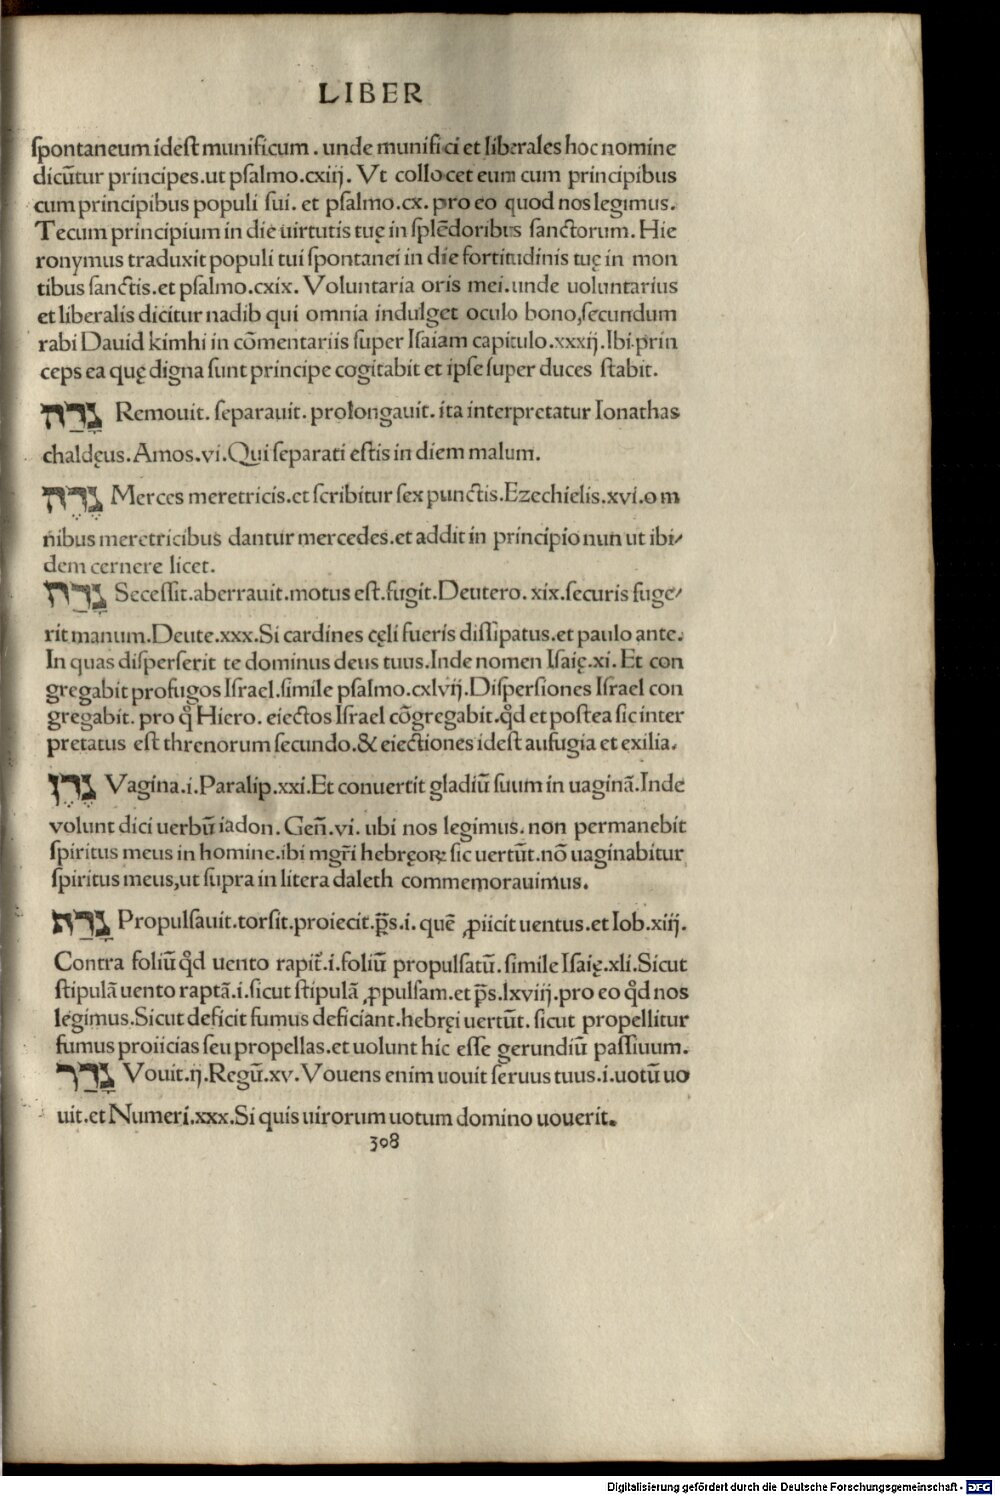 LIBER
ſpontaneum ideſt munificum . unde munifici et liberales hoc nomine
dicūtur principes.ut pſalmo.cxiij. Vt collocet eum cum principibus
cum principibus populi ſui. et pſalmo.cx. pro eo quod nos legimus.
Tecum principium in die uirtutis tuę in ſplēdoribus ſanctorum. Hie
ronymus traduxit populi tui ſpontanei in die fortitudinis tuę in mon
tibus ſanctis.et pſalmo.cxix. Voluntaria oris mei.unde uoluntarius
et liberalis dicitur nadib qui omnia indulget oculo bono,ſecundum
rabi Dauid kimhi in cōmentariis ſuper Iſaiam capitulo.xxxij.Ibi.prin
ceps ea quę digna ſunt principe cogitabit et ipſe ſuper duces ſtabit.
נָדָה Remouit. ſeparauit. prolongauit. ita interpretatur Ionathas
chaldęus.Amos.vi.Qui ſeparati eſtis in diem malum.
נֶדֶה Merces meretricis.et ſcribitur ſex punctis.Ezechielis.xvi.om
nibus meretricibus dantur mercedes.et addit in principio nun ut ibi⸗
dem cernere licet.
נָדַח Seceſſit.aberrauit.motus eſt.fugit.Deutero. xix.ſecuris fuge⸗
rit manum.Deute.xxx.Si cardines cęli fueris diſſipatus.et paulo ante.
In quas diſperſerit te dominus deus tuus.Inde nomen Iſaię.xi. Et con
gregabit profugos Iſrael.ſimile pſalmo.cxlvij.Diſperſiones Iſrael con
gregabit. pro qͦ Hiero. eiectos Iſrael cōgregabit.qͦd et poſtea ſic inter
pretatus eſt threnorum ſecundo.& eiectiones ideſt aufugia et exilia.
נֶדֶן Vagina.i.Paralip.xxi.Et conuertit gladiū ſuum in uaginā.Inde
volunt dici uerbū iadon. Geñ.vi. ubi nos legimus. non permanebit
ſpiritus meus in homine.ibi mgr̃i hebręoꝝ ſic uertūt.nō uaginabitur
ſpiritus meus,ut ſupra in litera daleth commemorauimus.
נָדַף Propulſauit.torſit.proiecit.p̄s.i. quē ꝓiicit uentus.et Iob.xiij.
Contra foliū qͦd uento rapit᷑.i.foliū propulſatū. ſimile Iſaię.xli.Sicut
ſtipulā uento raptā.i.ſicut ſtipulā ꝓpulſam.et p̄s.lxviij.pro eo qͦd nos
legimus.Sicut deficit fumus deficiant.hebręi uertūt. ſicut propellitur
fumus proiicias ſeu propellas.et uolunt hic eſſe gerundiū paſſiuum.
נָדַר Vouit.ij.Regū.xv.Vouens enim uouit ſeruus tuus.i.uotū uo
uit.et Numeri.xxx.Si quis uirorum uotum domino uouerit.
308
Digitalisierung gefördert durch die Deutsche Forschungsgemeinschaft - DFG